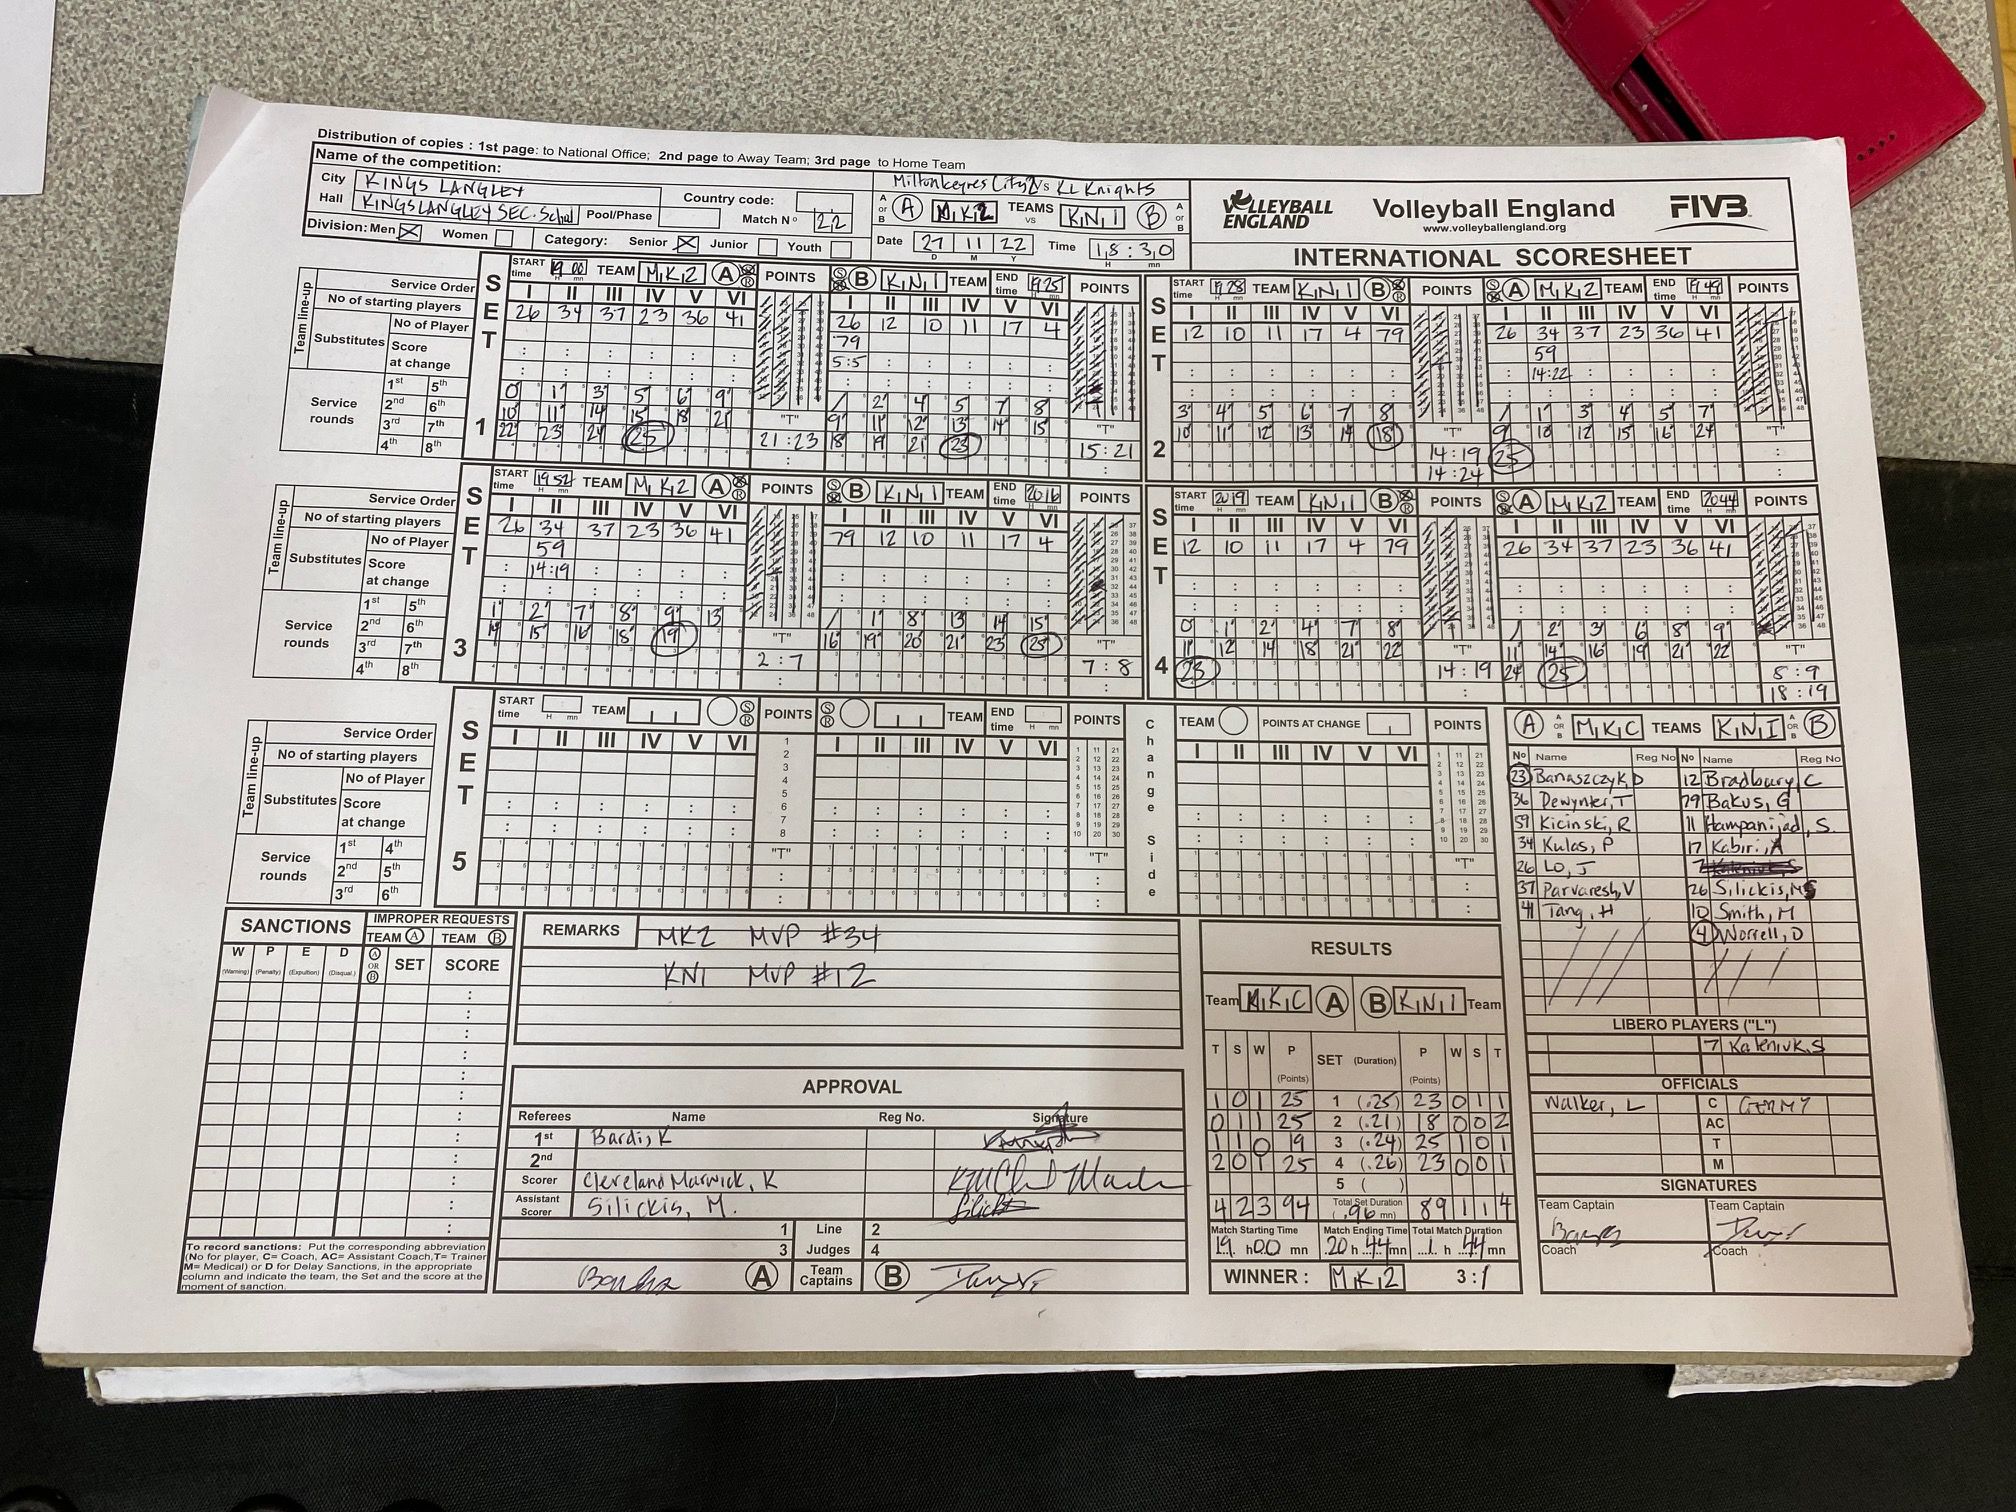 Distribution of copies : 1st page: to National Office; 2nd page to Away Team; 3rd page to Home Team
Name of the competition:
Milton Keynes City 2 vs KL Knights
City KINGS LANGLEY Country code:
Hall KINGS LANGLEY SEC. School Pool/Phase Match Nº 22
Division: Men Women Category: Senior Junior Youth
A or B A MK2 TEAMS vs KN1 B A or B
Date 27 11 22 Time 18:30
D M Y H mn
VOLLEYBALL ENGLAND
Volleyball England
www.volleyballengland.org
FIVB
INTERNATIONAL SCORESHEET
Team line-up
Service Order
No of starting players
Substitutes
No of Player
Score at change
Service rounds
1st 5th
2nd 6th
3rd 7th
4th 8th
SET 1
START time 19 00 TEAM MK2 A S R POINTS
I II III IV V VI
26 34 37 23 36 41
0 1 3 5 6 9
10 11 14 15 18 21
22 23 24 25
"T"
21:23
S R B KN1 TEAM END time 1925 POINTS
I II III IV V VI
26 12 10 11 17 4
79
5:5
2 4 5 7 8
9 11 12 13 14 15
18 19 21 23
"T"
15:21
SET 2
START time 1928 TEAM KN1 B S R POINTS
I II III IV V VI
12 10 11 17 4 79
3 4 5 6 7 8
10 11 12 13 14 18
"T"
14:19
14:24
S R A MK2 TEAM END time 1949 POINTS
I II III IV V VI
26 34 37 23 36 41
59
14:22
1 3 4 5 7
9 10 12 15 16 24
25
"T"
Team line-up
Service Order
No of starting players
Substitutes
No of Player
Score at change
Service rounds
1st 5th
2nd 6th
3rd 7th
4th 8th
SET 3
START time 1952 TEAM MK2 A S R POINTS
I II III IV V VI
26 34 37 23 36 41
59
14:19
1 2 7 8 9 13
14 15 16 18 19
"T"
2:7
S R B KN1 TEAM END time 2016 POINTS
I II III IV V VI
79 12 10 11 17 4
1 8 13 14 15
16 19 20 21 23 25
"T"
7:8
SET 4
START time 2019 TEAM KN1 B S R POINTS
I II III IV V VI
12 10 11 17 4 79
0 1 2 4 7 8
11 12 14 18 21 22
23
"T"
14:19
S R A MK2 TEAM END time 2044 POINTS
I II III IV V VI
26 34 37 23 36 41
2 3 6 8 9
11 14 16 19 21 22
24 25
"T"
8:9
18:19
Team line-up
Service Order
No of starting players
Substitutes
No of Player
Score at change
Service rounds
1st 4th
2nd 5th
3rd 6th
SET 5
START time TEAM S R POINTS
I II III IV V VI
"T"
S R TEAM END time POINTS
I II III IV V VI
"T"
Change Side
TEAM POINTS AT CHANGE POINTS
I II III IV V VI
"T"
A A OR B MKC TEAMS KN1 A OR B B
Nº Name Reg No Nº Name Reg No
23 Banaszczyk, D 12 Bradbury, C
36 Dewynter, T 79 Bakus, G
59 Kicinski, R 11 Hampanijad, S.
34 Kulas, P 17 Kabiri, A
26 Lo, J
37 Parvaresh, V 26 Silickis, M
41 Tang, H 10 Smith, M
4 Worrell, D
LIBERO PLAYERS ("L")
7 Kaleniuk, S
OFFICIALS
Walker, L C GERMY
AC
T
M
SIGNATURES
Team Captain Team Captain
Coach Coach
SANCTIONS
IMPROPER REQUESTS
TEAM A TEAM B
W P E D A OR B SET SCORE
(Warning) (Penalty) (Expultion) (Disqual.)
To record sanctions: Put the corresponding abbreviation
(No for player, C= Coach, AC= Assistant Coach,T= Trainer
M= Medical) or D for Delay Sanctions, in the appropriate
column and indicate the team, the Set and the score at the
moment of sanction.
REMARKS
MK2 MVP #34
KN1 MVP #12
APPROVAL
Referees Name Reg No. Signature
1st Bardi, K
2nd
Scorer Cleveland Marwick, K
Assistant Scorer Silickis, M.
1 Line 2
3 Judges 4
A Team Captains B
RESULTS
Team MKC A B KN1 Team
T S W P (Points) SET (Duration) P (Points) W S T
1 0 1 25 1 (.25) 23 0 1 1
0 1 1 25 2 (.21) 18 0 0 2
1 1 0 19 3 (.24) 25 1 0 1
2 0 1 25 4 (.26) 23 0 0 1
5 ( )
4 2 3 94 Total Set Duration (.96 mn) 89 1 1 4
Match Starting Time Match Ending Time Total Match Duration
19 h 00 mn 20 h 44 mn 1 h 44 mn
WINNER : MK2 3:1